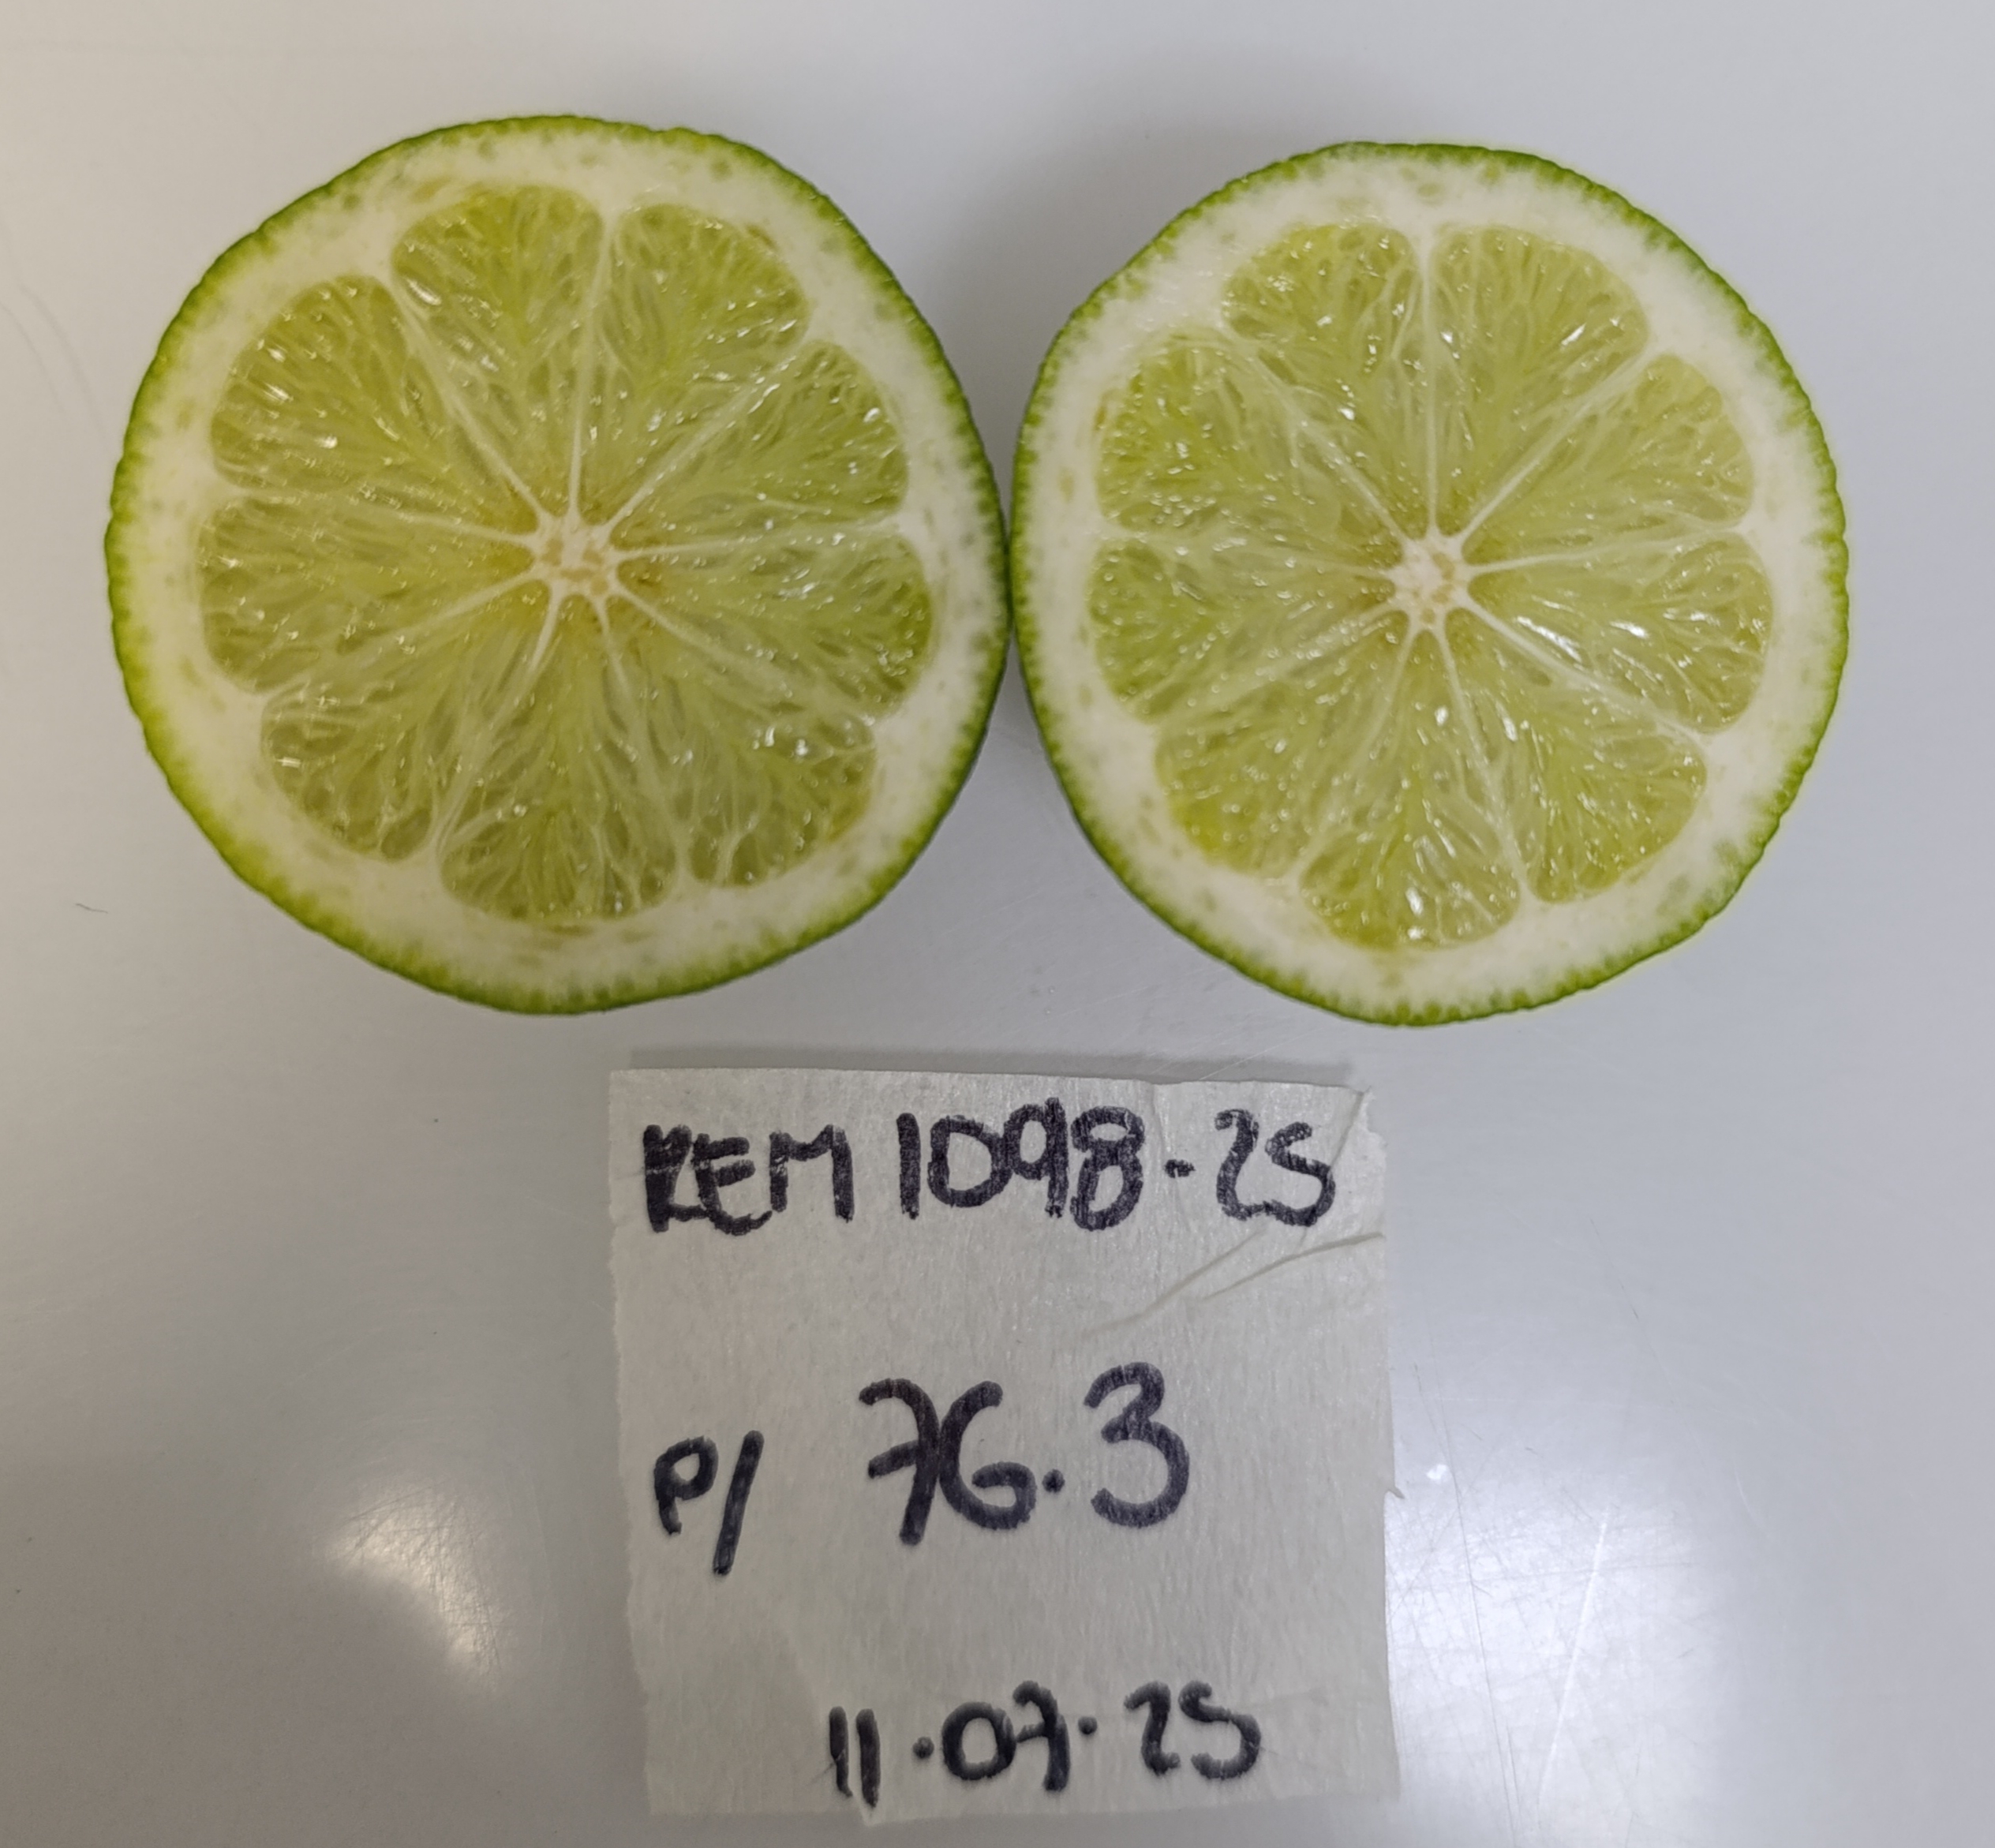 REM 1098-25
P/ 76.3
11.07.25